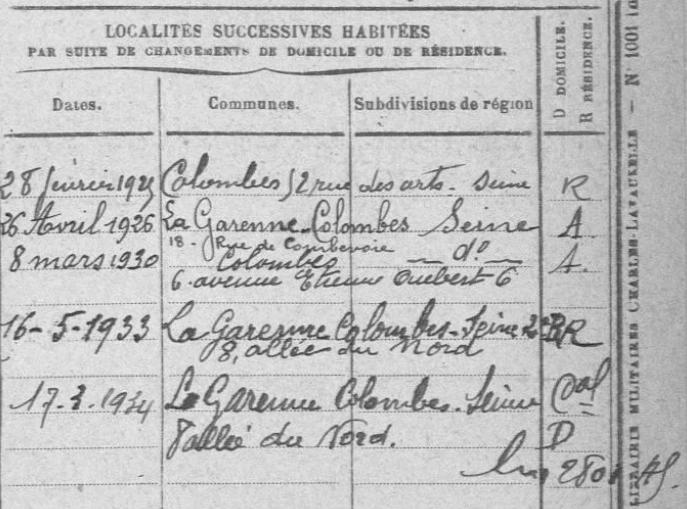 LOCALITÉS SUCCESSIVES HABITÉES
PAR SUITE DE CHANGEMENTS DE DOMICILE OU DE RÉSIDENCE.
D DOMICILE.
R RÉSIDENCE.
Dates. Communes. Subdivisions de région
28 février Colombes 12 rue des arts. Seine R
26 Avril 1926 La Garenne-Colombes Seine A
18 - Rue de Courbevoie
8 mars 1930 Colombes — do — A.
6 avenue Etienne 6
16-5-1933 La Garenne Colombes-Seine R
8, allée du Nord
17.3.1934 La Garenne Colombes. Seine
8 allée du Nord. D
LIBRAIRIE MILITAIRES CHARLES-LAVAUZELLE — N 1001